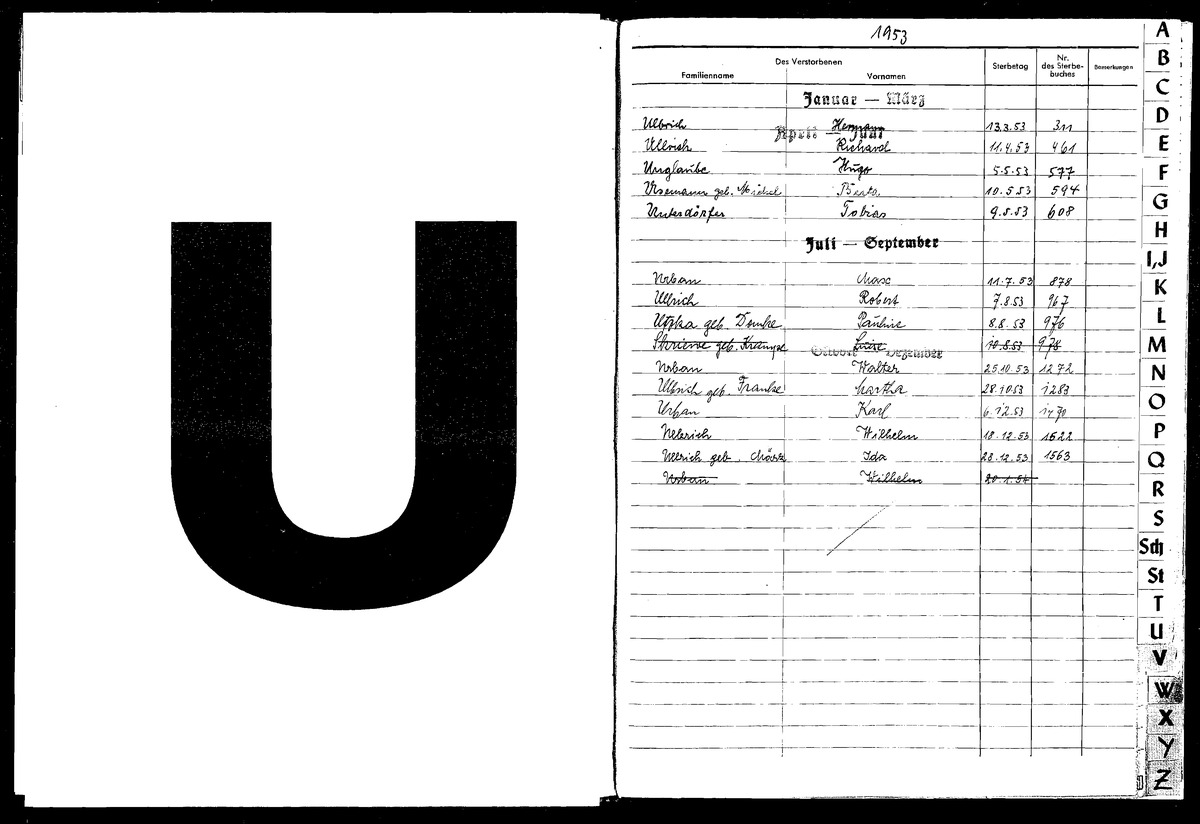 U
1953
Des Verstorbenen
Familienname Vornamen Sterbetag Nr. des Sterbe-buches Bemerkungen
Januar — März
Ulbrich Hermann 13.3.53 311
April — Juni
Ullrich Richard 11.4.53 461
Unglaube Hugo 5.5.53 577
geb. Michael Berta 10.5.53 594
Unterdörfer Tobias 9.5.53 608
Juli — September
Urban Max 11.7.53 878
Ullrich Robert 7.8.53 967
geb. Pauline 8.8.53 976
geb. Luise 10.8.53 978
Oktober — Dezember
Urban Walter 25.10.53 1272
Ulbrich geb. Franke Martha 28.10.53 1283
Urban Karl 6.12.53
Ulbrich Wilhelm 18.12.53 1522
Ullrich geb. März Ida 28.12.53 1563
Urban Wilhelm 20.1.54
A
B
C
D
E
F
G
H
I,J
K
L
M
N
O
P
Q
R
S
Sch
St
T
U
V
W
X
Y
Z